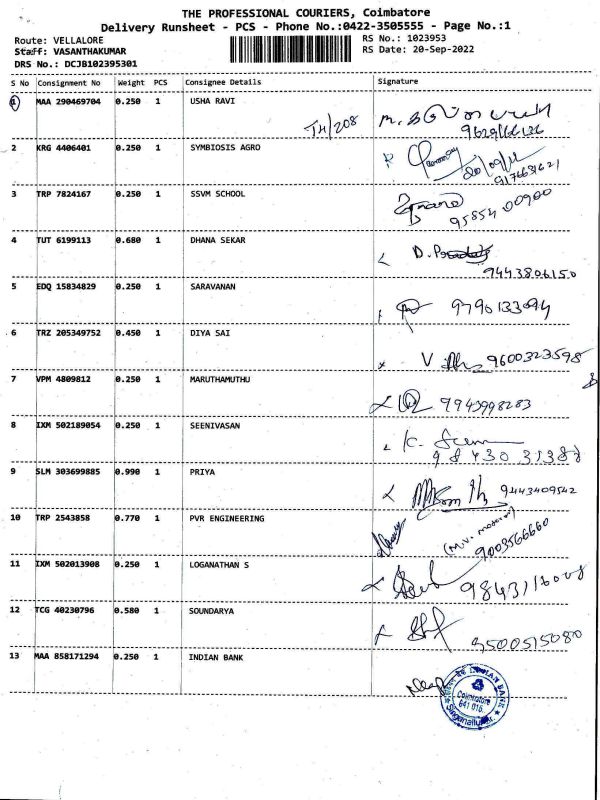 THE PROFESSIONAL COURIERS, Coimbatore
Delivery Runsheet - PCS - Phone No.:0422-3505555 - Page No.:1
Route: VELLALORE
RS No.: 1023953
Staff: VASANTHAKUMAR
RS Date: 20-Sep-2022
DRS No.: DCJB102395301
S No Consignment No Weight PCS Consignee Details Signature
1 MAA 290469704 0.250 1 USHA RAVI
TH/208
2 KRG 4406401 0.250 1 SYMBIOSIS AGRO
3 TRP 7824167 0.250 1 SSVM SCHOOL
95854 00900
4 TUT 6199113 0.680 1 DHANA SEKAR
9443806150
5 EDQ 15834829 0.250 1 SARAVANAN
9790133694
6 TRZ 205349752 0.450 1 DIYA SAI
9600323598
7 VPM 4809812 0.250 1 MARUTHAMUTHU
9943998283
8 IXM 502189054 0.250 1 SEENIVASAN
98430 31388
9 SLM 303699885 0.990 1 PRIYA
9443409542
10 TRP 2543858 0.770 1 PVR ENGINEERING
9003566660
11 IXM 502013908 0.250 1 LOGANATHAN S
12 TCG 40230796 0.580 1 SOUNDARYA
9500515080
13 MAA 858171294 0.250 1 INDIAN BANK
INDIAN BANK
Coimbatore
641 016.
Singanallur